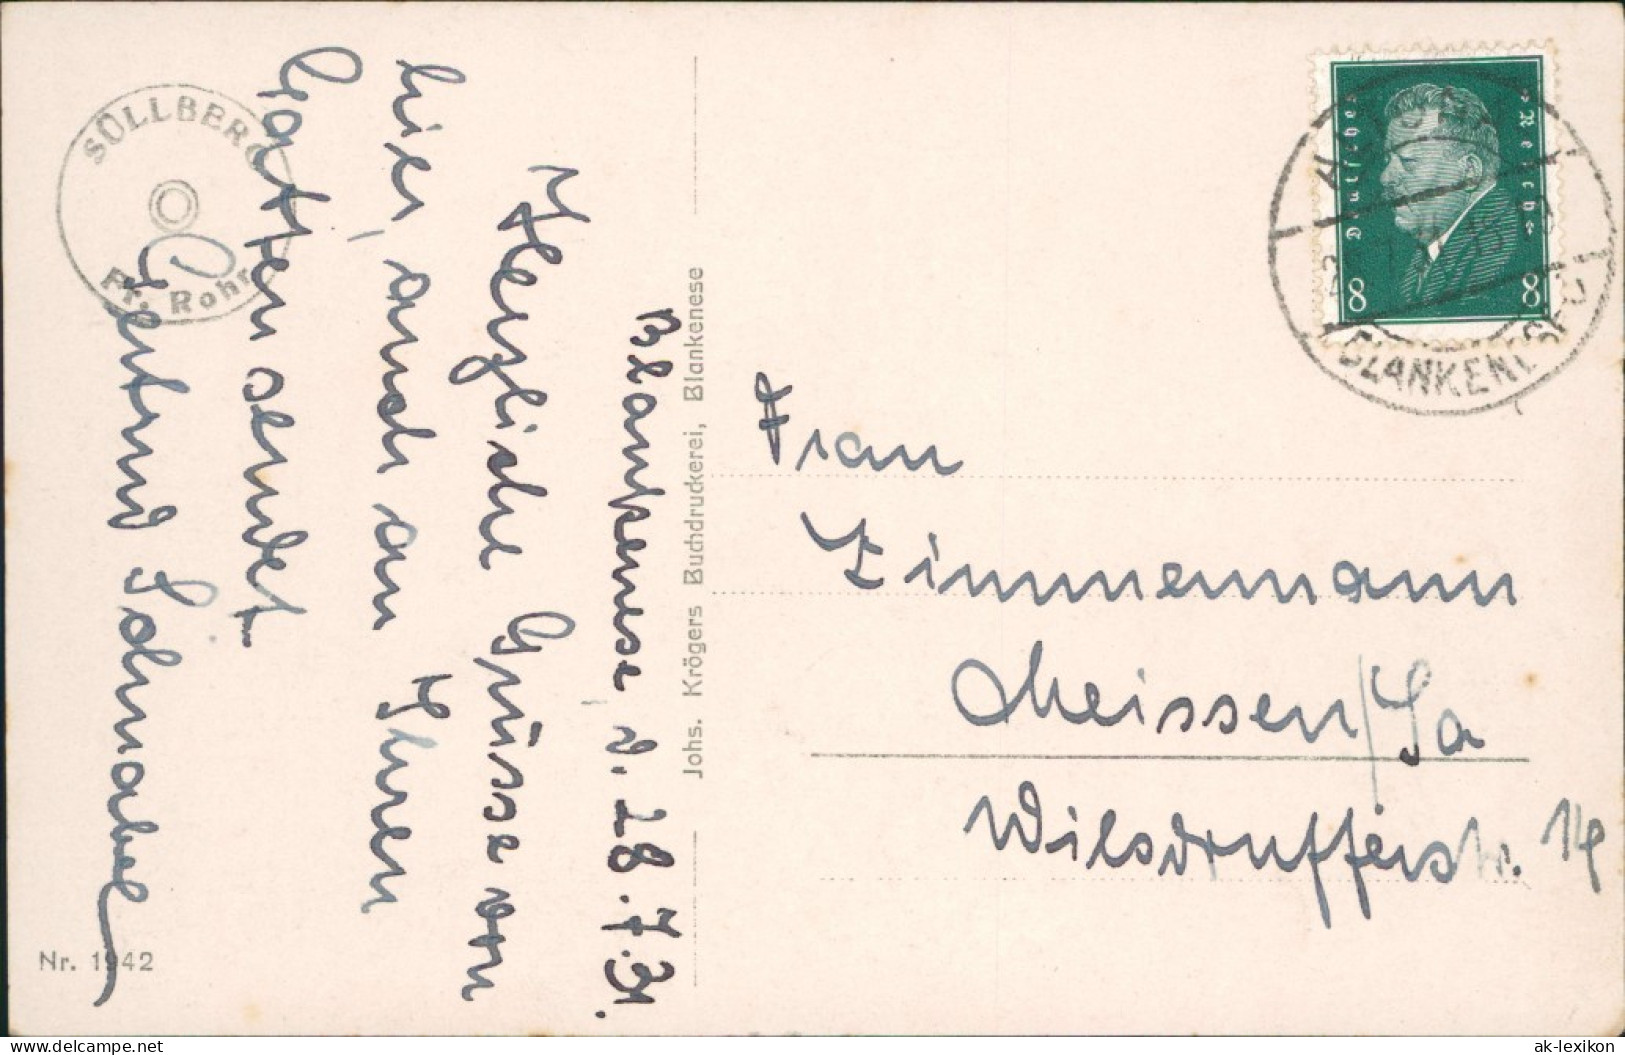 Blankenese d. 28.7.31.
Herzliche Grüsse von
hier, auch an Ihren
Gatten sendet
Gertrud Schnabel
SÜLLBERG
Fr. Rohr
Nr. 1942
Johs. Krögers Buchdruckerei, Blankenese
Deutsches Reich
8 8
BLANKENESE
Frau
Zimmermann
Meissen/Sa
Wilsdrufferstr. 14
delcampe.net
ak-lexikon